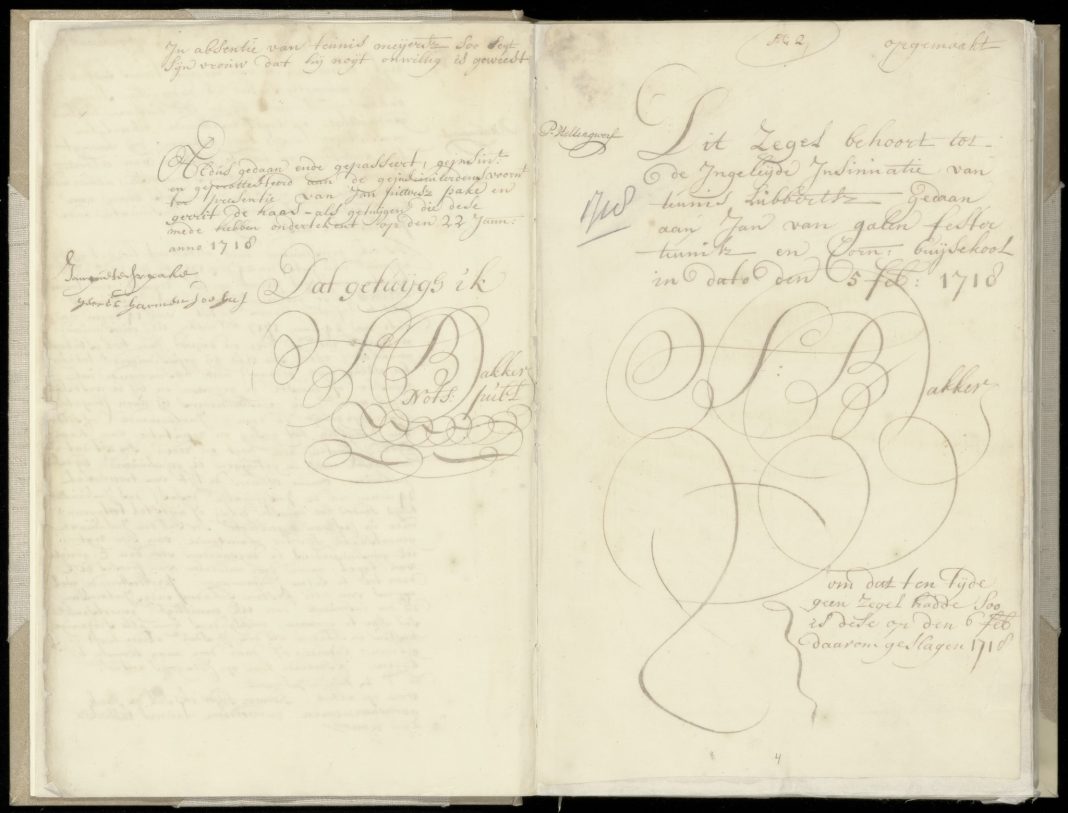 In absentie van teunis meijertsz Soo Segt
Sijn vrouw dat hij noijt onwillig is geweest
Aldus gedaan ende gepasseert, geinsin:
en geprotesteerd aan de geinsinueerdens voornt
ter presentie van Jan pietersz pake en
gerrit de haas als getuijgen die dese
mede hebben ondertekent op den 22 Janu:
anno 1718
Jan pietersz pake
gerrit harmensz de haas
Dat getuijgs ik
S: Bakker
Nots: publ
No 2 opgemaakt
P. Hellingwerf
Dit Zegel behoort tot
de Ingeleyde Insinuatie van
teunis Lubbertsz Gedaan
1718
aan Jan van galen fester
teunisz en Corn: buijskool
in dato den 5 feb: 1718
S: Bakker
om dat ten Tijde
geen Zegel hadde Soo
is dese op den 6 feb
daarom geslagen 1718
4